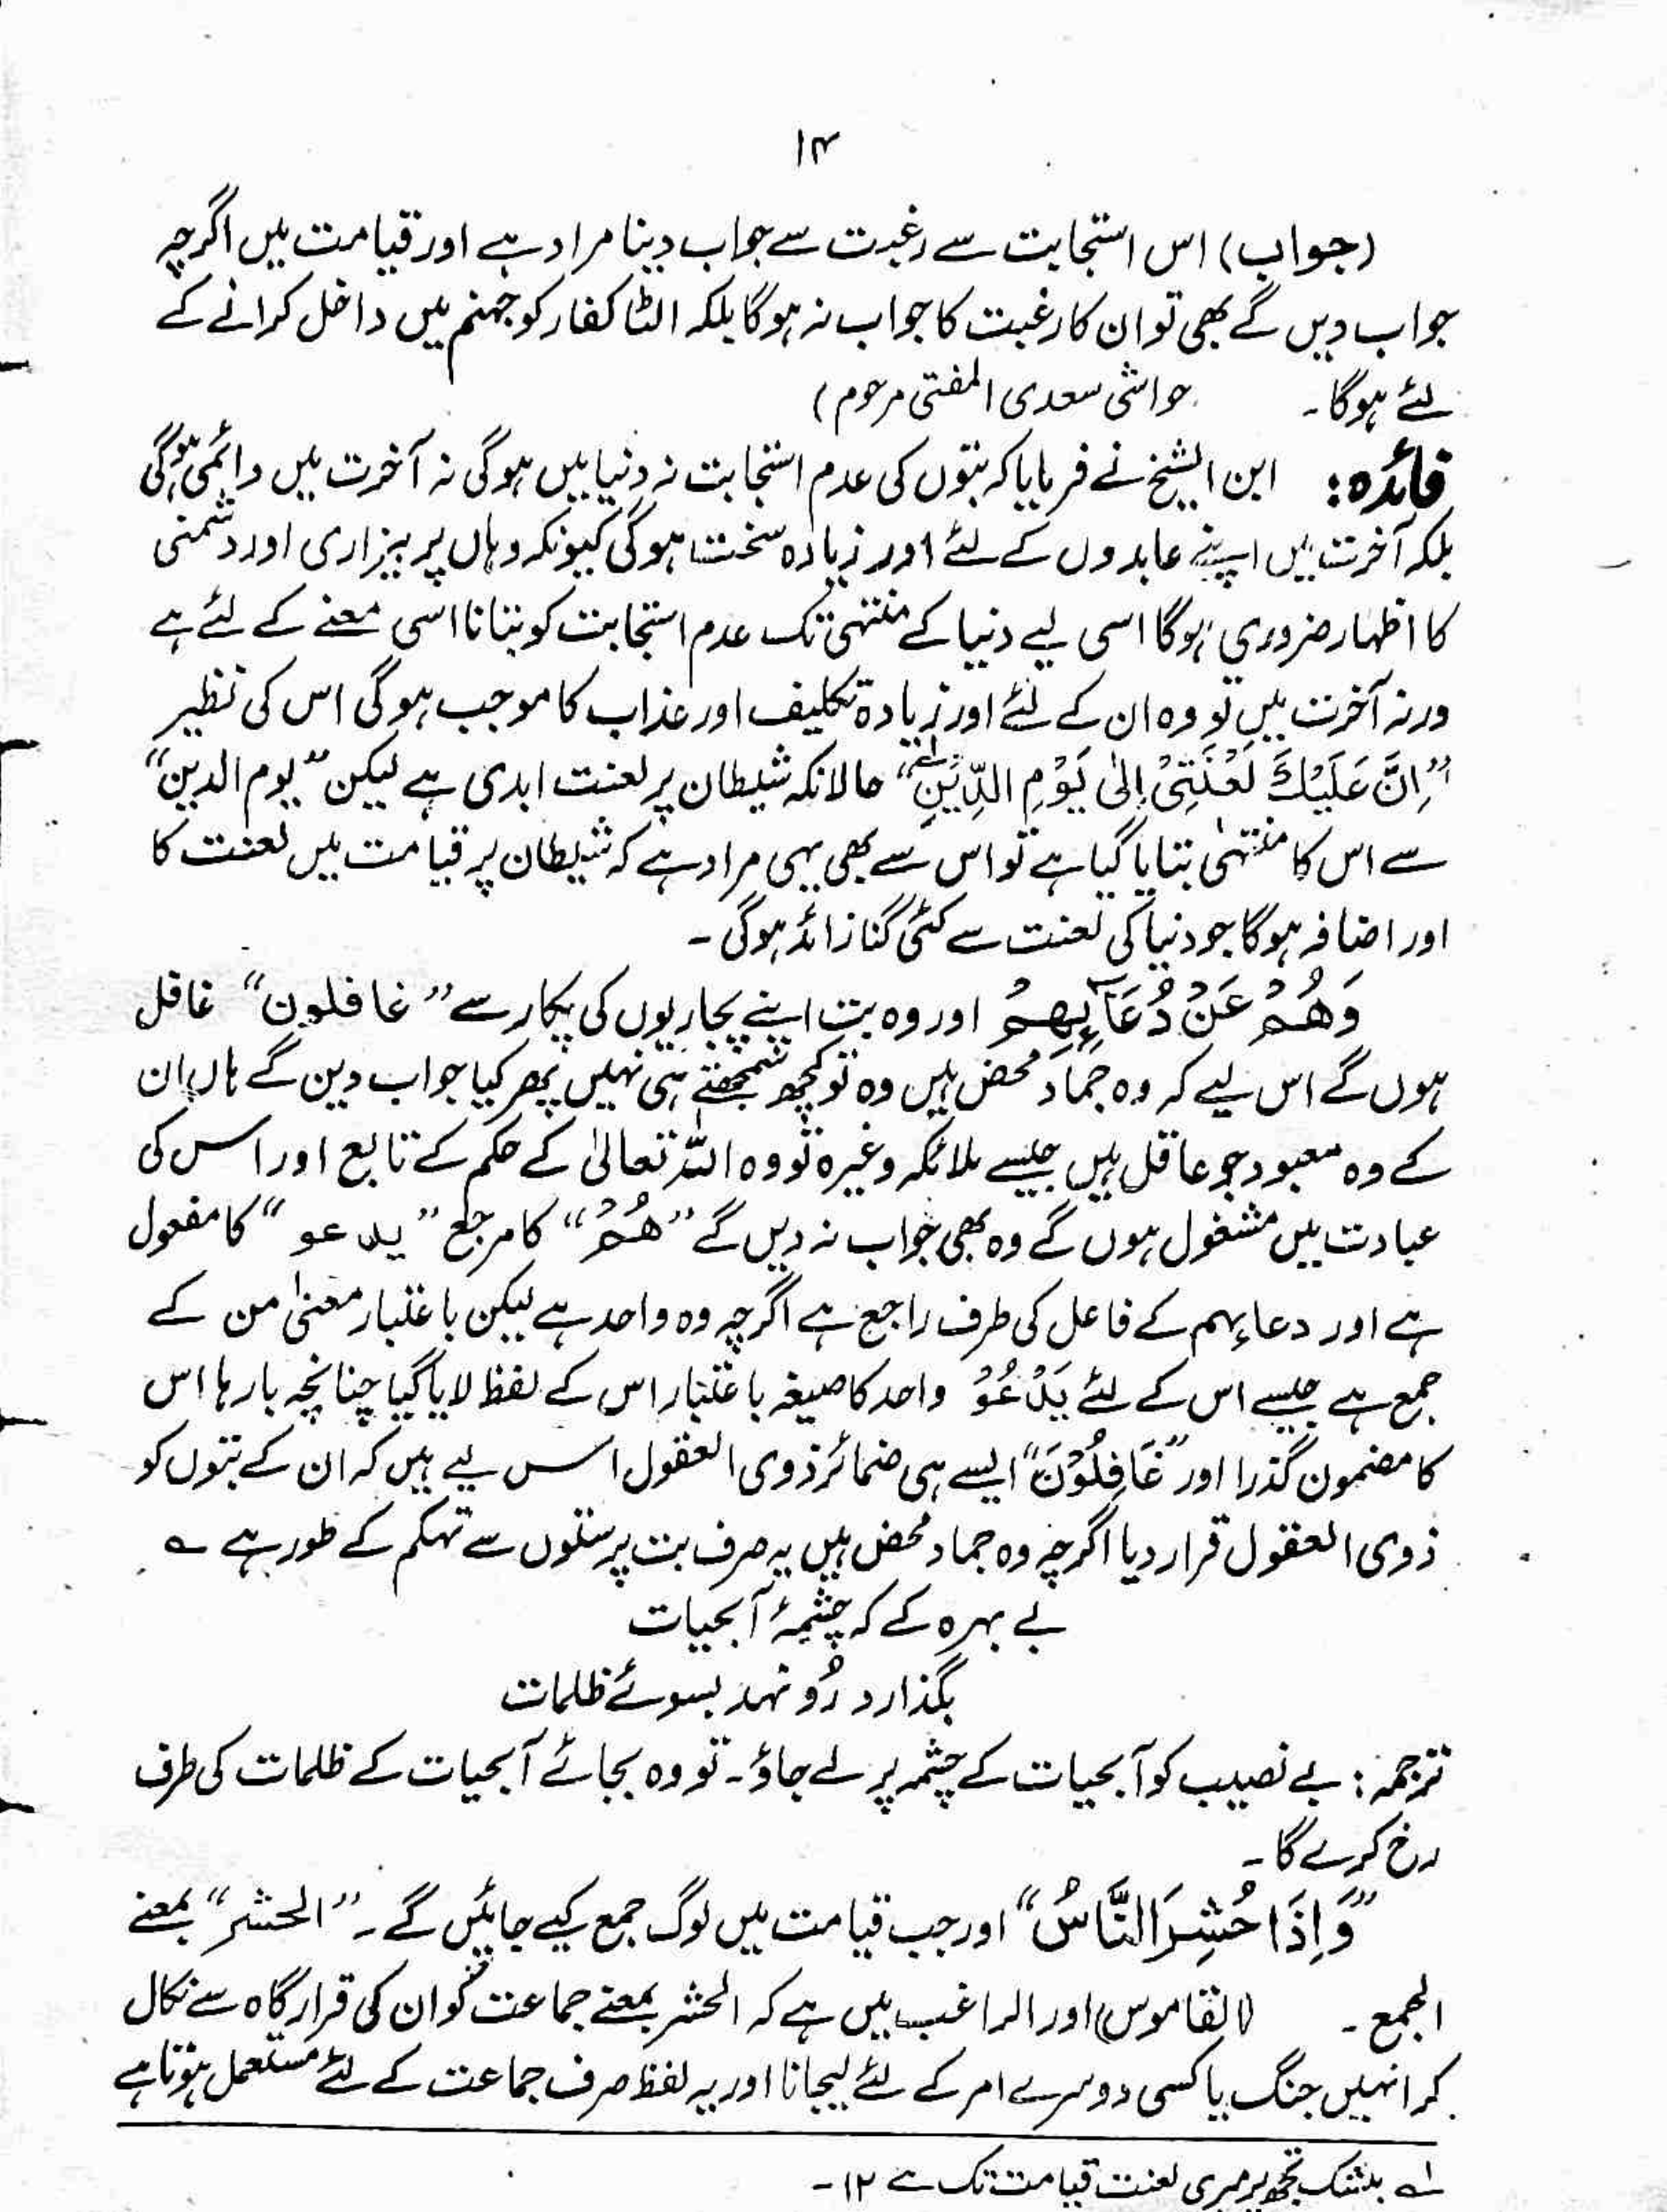 ۱۴
(جواب) اس استجابت سے رغبت سے جواب دینا مراد ہے اور قیامت میں اگرچہ
جواب دیں گے بھی تو ان کا رغبت کا جواب نہ ہوگا بلکہ الٹا کفار کو جہنم میں داخل کرانے کے
لئے ہوگا۔ حواشی سعدی المفتی مرحوم)
فائدہ: ابن الشیخ نے فرمایا کہ بتوں کی عدم استجابت نہ دنیا میں ہوگی نہ آخرت میں دائمی ہوگی
بلکہ آخرت میں اپنے عابدوں کے لئے اور زیادہ سخت ہوگی کیونکہ وہاں پر بیزاری اور دشمنی
کا اظہار ضروری ہوگا اسی لیے دنیا کے منتہیٰ تک عدم استجابت کو بتانا اسی معنے کے لئے ہے
ورنہ آخرت میں تو وہ ان کے لئے اور زیادہ تکلیف اور عذاب کا موجب ہوگی اس کی نظیر
”اِنَّ عَلَیْكَ لَعْنَتِیْ اِلٰی یَوْمِ الدِّیْنِ“ حالانکہ شیطان پر لعنت ابدی ہے لیکن ”یوم الدین“
سے اس کا منتہیٰ بتایا گیا ہے تو اس سے بھی یہی مراد ہے کہ شیطان پر قیامت میں لعنت کا
اور اضافہ ہوگا جو دنیا کی لعنت سے کئی گنا زائد ہوگی۔
وَهُمْ عَنْ دُعَآىِٕهِمْ اور وہ بت اپنے پجاریوں کی پکار سے ”غافلون“ غافل
ہوں گے اس لیے کہ وہ جماد محض ہیں وہ تو کچھ سمجھتے ہی نہیں پھر کیا جواب دین گے ہاں ان
کے وہ معبود جو عاقل ہیں جیسے ملائکہ وغیرہ تو وہ اللہ تعالیٰ کے حکم کے تابع اور اس کی
عبادت میں مشغول ہوں گے وہ بھی جواب نہ دیں گے ”هُمْ“ کا مرجع ”یدعو“ کا مفعول
ہے اور دعاءِہم کے فاعل کی طرف راجع ہے اگرچہ وہ واحد ہے لیکن باعتبار معنیٰ من کے
جمع ہے جیسے اس کے لئے یَدْعُوْ واحد کا صیغہ باعتبار اس کے لفظ لایا گیا چنانچہ بارہا اس
کا مضمون گذرا اور ”غَافِلُوْنَ“ ایسے ہی ضمائر ذوی العقول اس لیے ہیں کہ ان کے بتوں کو
ذوی العقول قرار دیا اگرچہ وہ جماد محض ہیں یہ صرف بت پرستوں سے تہکم کے طور ہے ؎
بے بہرہ کے کہ چشمۂ آبحیات
بگذارد رُو نہد بسوئے ظلمات
ترجمہ: بے نصیب کو آبحیات کے چشمہ پر لے جاؤ۔ تو وہ بجائے آبحیات کے ظلمات کی طرف
رخ کرے گا۔
”وَاِذَا حُشِرَ النَّاسُ“ اور جب قیامت میں لوگ جمع کیے جائیں گے۔ ”الحشر“ بمعنے
الجمع۔ (القاموس) اور الراغب میں ہے کہ الحشر بمعنے جماعت کو ان کی قرارگاہ سے نکال
کر انہیں جنگ یا کسی دوسرے امر کے لئے لیجانا اور یہ لفظ صرف جماعت کے لئے مستعمل ہوتا ہے
؎۱ بیشک تجھ پر میری لعنت قیامت تک ہے ۱۲۔